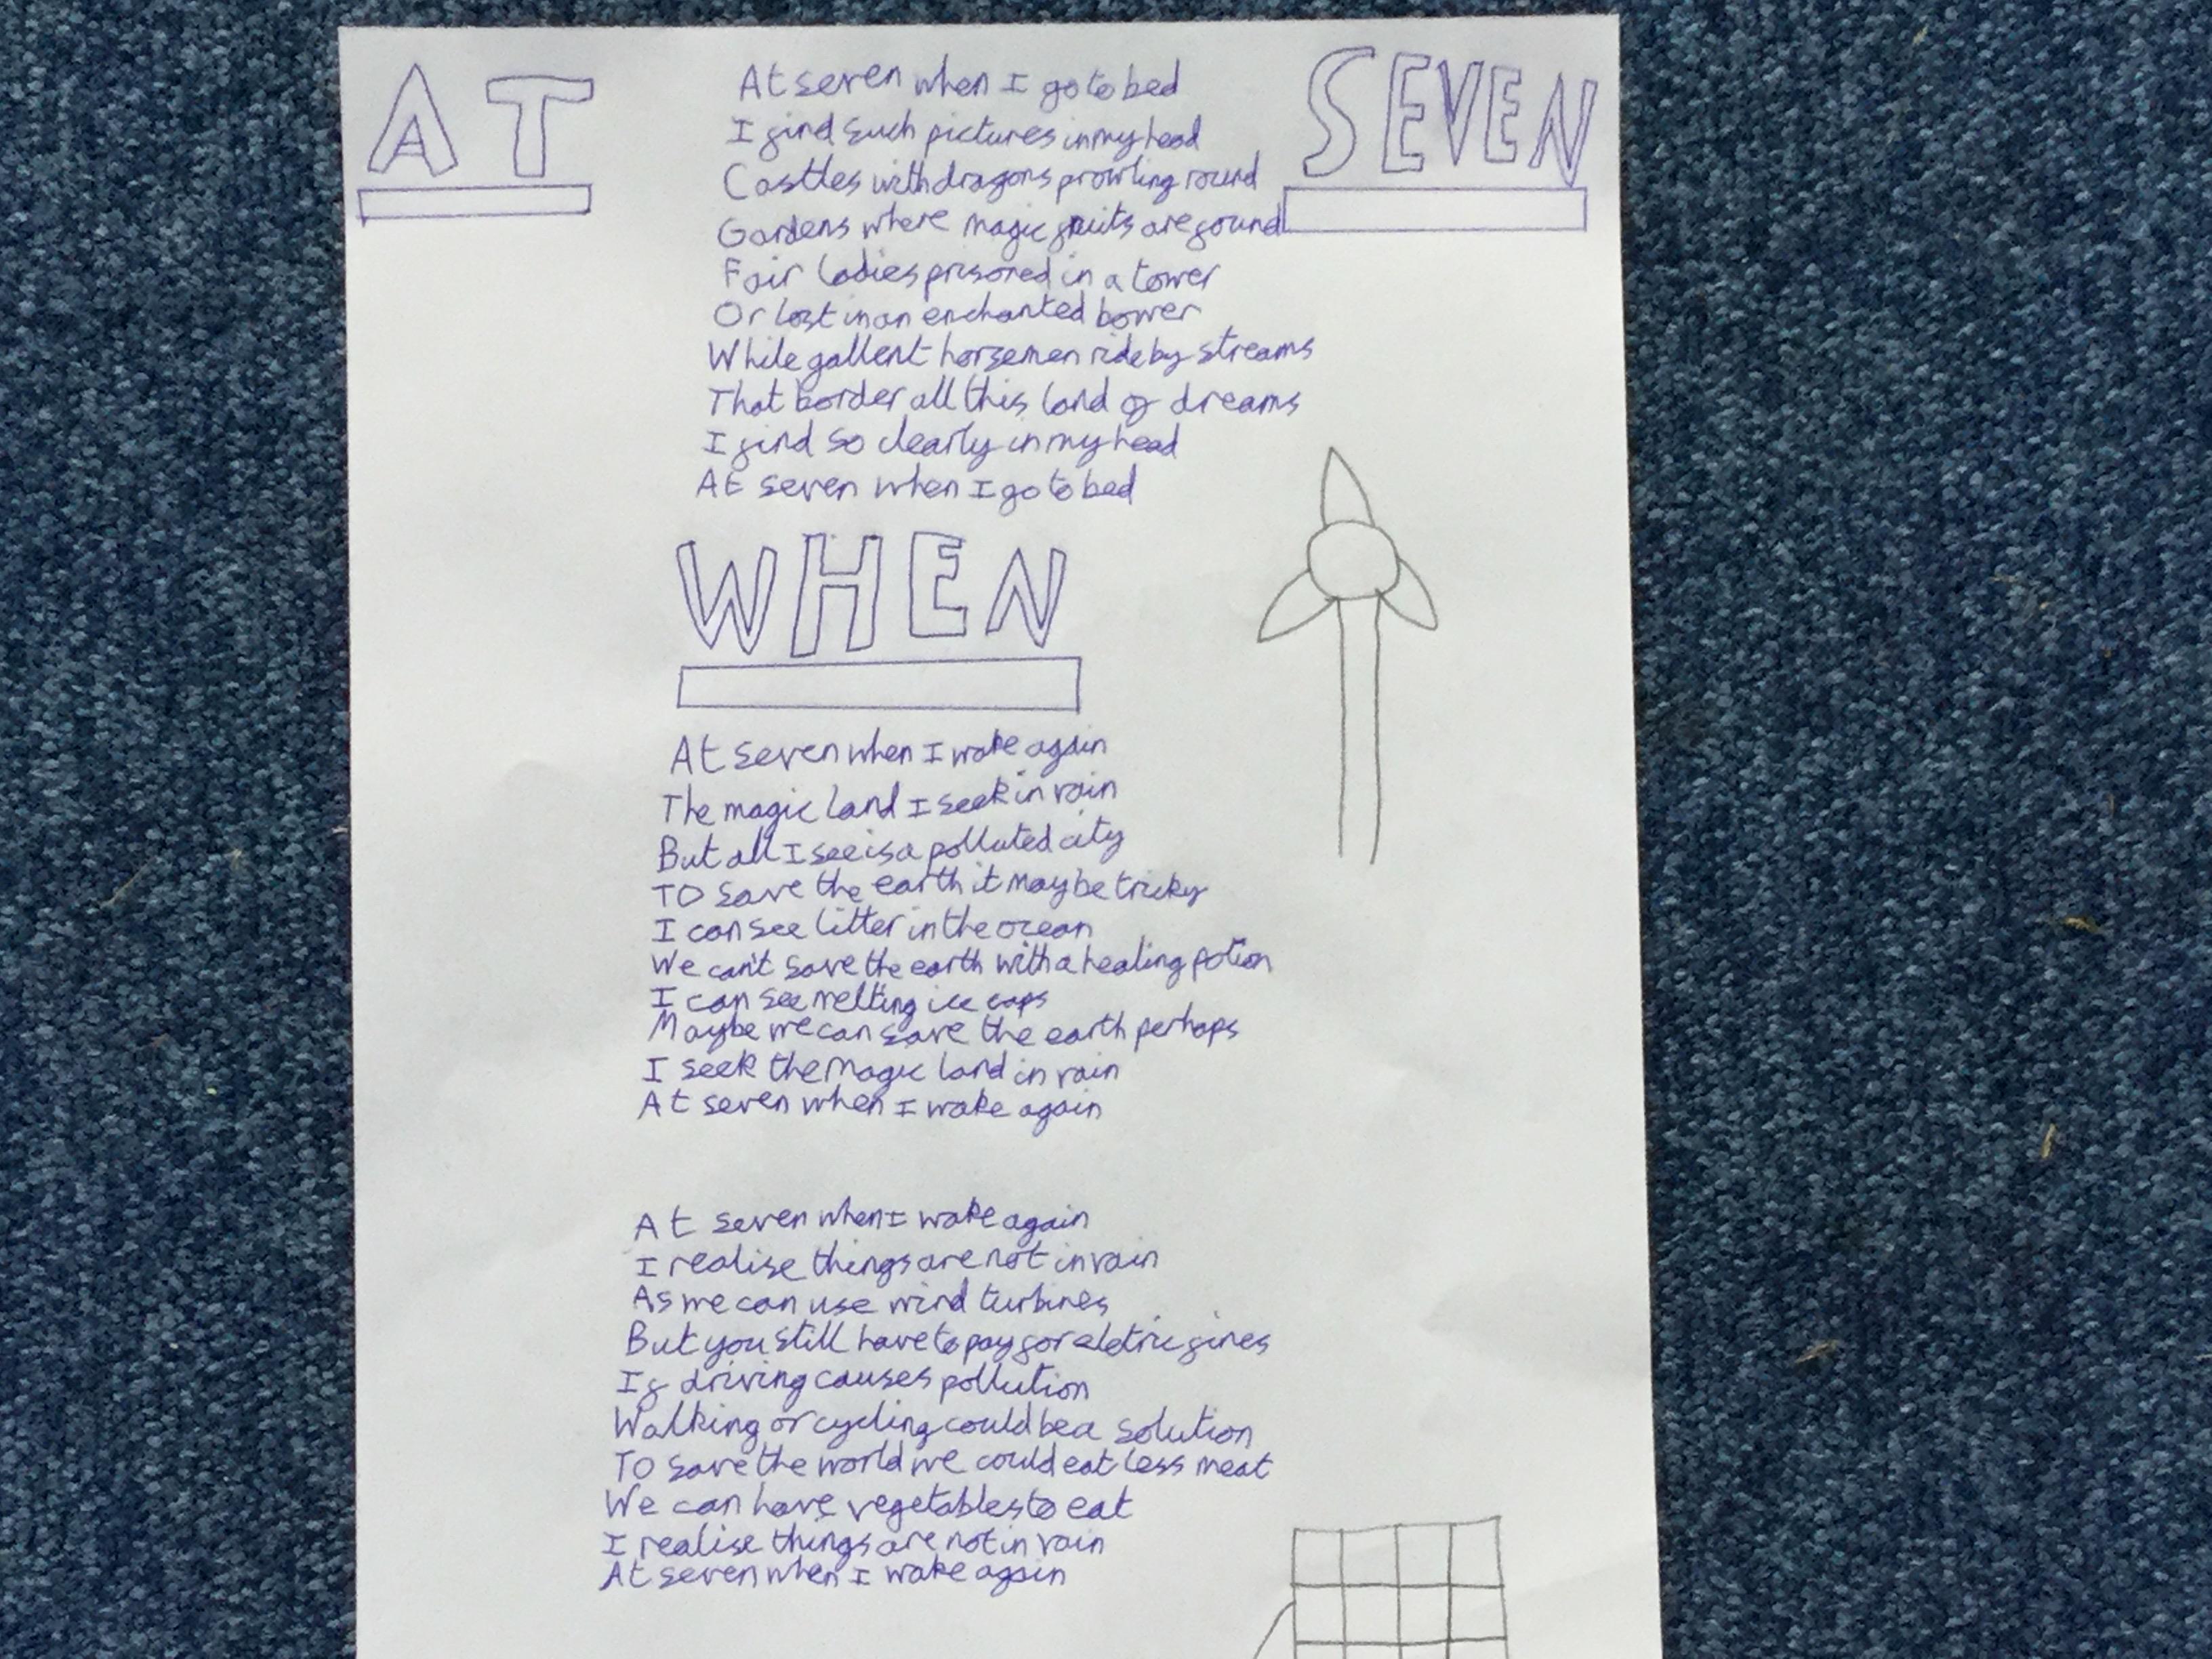 AT
SEVEN
At seven when I go to bed
I find such pictures in my head
Castles with dragons prowling round
Gardens where magic fruits are found
Fair ladies prisored in a tower
Or lost in an enchanted bower
While gallent horsemen ride by streams
That border all this land of dreams
I find so clearly in my head
At seven when I go to bed
WHEN
At seven when I wake again
The magic land I seek in vain
But all I see is a polluted city
TO save the earth it may be tricky
I can see litter in the ocean
We can't save the earth with a healing potion
I can see melting ice caps
Maybe we can save the earth perhaps
I seek the magic land in vain
At seven when I wake again
At seven when I wake again
I realise things are not in vain
As we can use wind turbines
But you still have to pay for eletric fines
If driving causes pollution
Walking or cycling could be a solution
TO save the world we could eat less meat
We can have vegetables to eat
I realise things are not in vain
At seven when I wake again